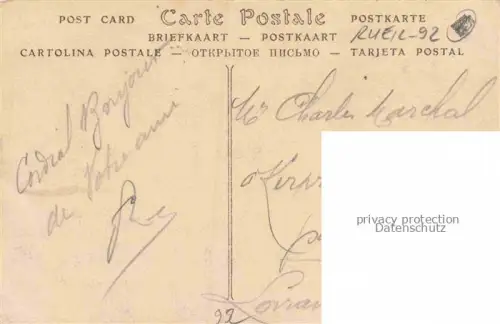 POST CARD Carte Postale POSTKARTE
BRIEFKAART — POSTKAART RUEIL-92
CARTOLINA POSTALE — ОТКРЫТОЕ ПИСЬМО — TARJETA POSTAL
Cordial Bonjour
de Votre ami
Mr Charles Marchal
privacy protection
Datenschutz
92